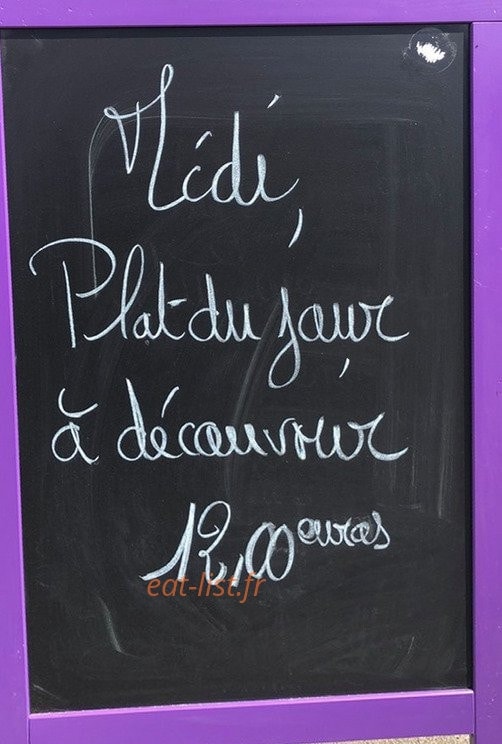 Midi,
Plat du jour,
à découvrir
12,00 euros
eat-list.fr